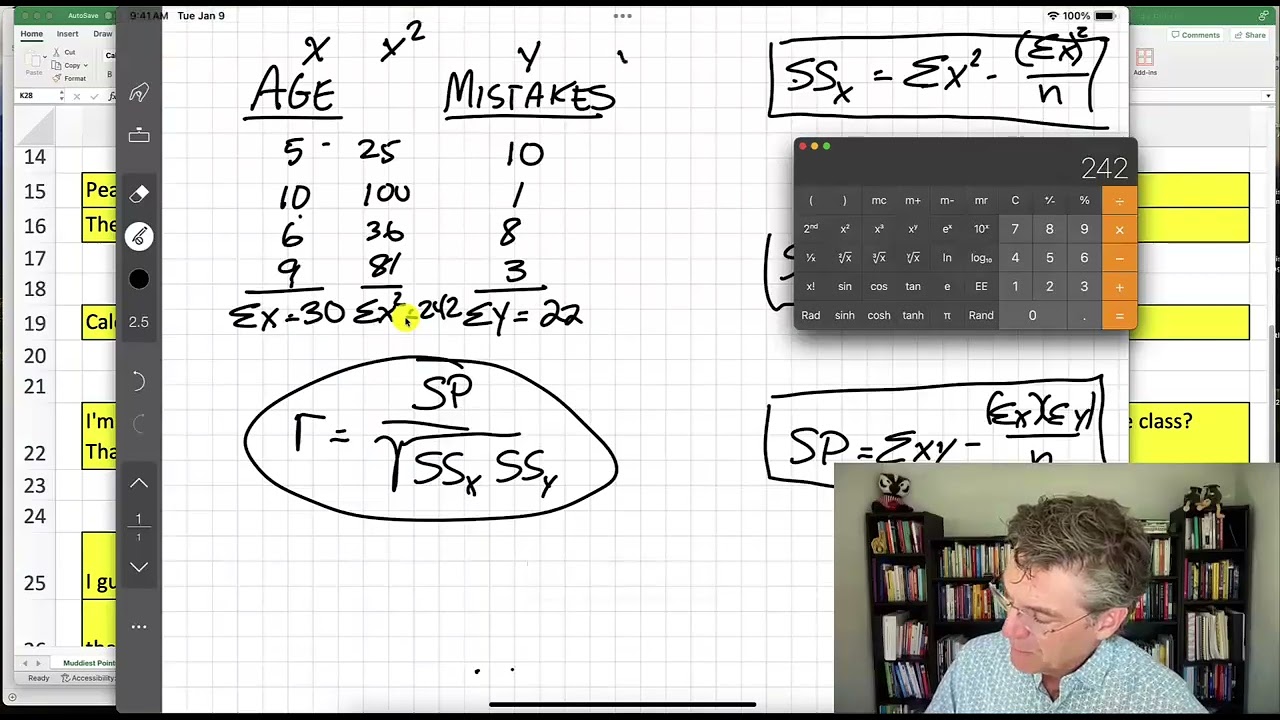 9:41 AM Tue Jan 9
100%
AutoSave
Home Insert Draw
Cut
Copy
Paste
Format
Comments Share
Add-ins
K28
x x² y
AGE MISTAKES
5 25 10
10 100 1
6 36 8
9 81 3
Σx=30 Σx²=242 Σy=22
r = SP / √SSx SSy
SSx = Σx² - (Σx)² / n
SP = Σxy - (Σx)(Σy) / n
242
( ) mc m+ m- mr C +/- % ÷
2nd x² x³ xʸ eˣ 10ˣ 7 8 9 ×
1/x ²√x ³√x ʸ√x ln log₁₀ 4 5 6 −
x! sin cos tan e EE 1 2 3 +
Rad sinh cosh tanh π Rand 0 . =
2.5
1
1
14
15
16
17
18
19
20
21
22
23
24
25
Pea
The
Calc
I'm
Tha
class?
I gu
Muddiest Point
Ready Accessibility: